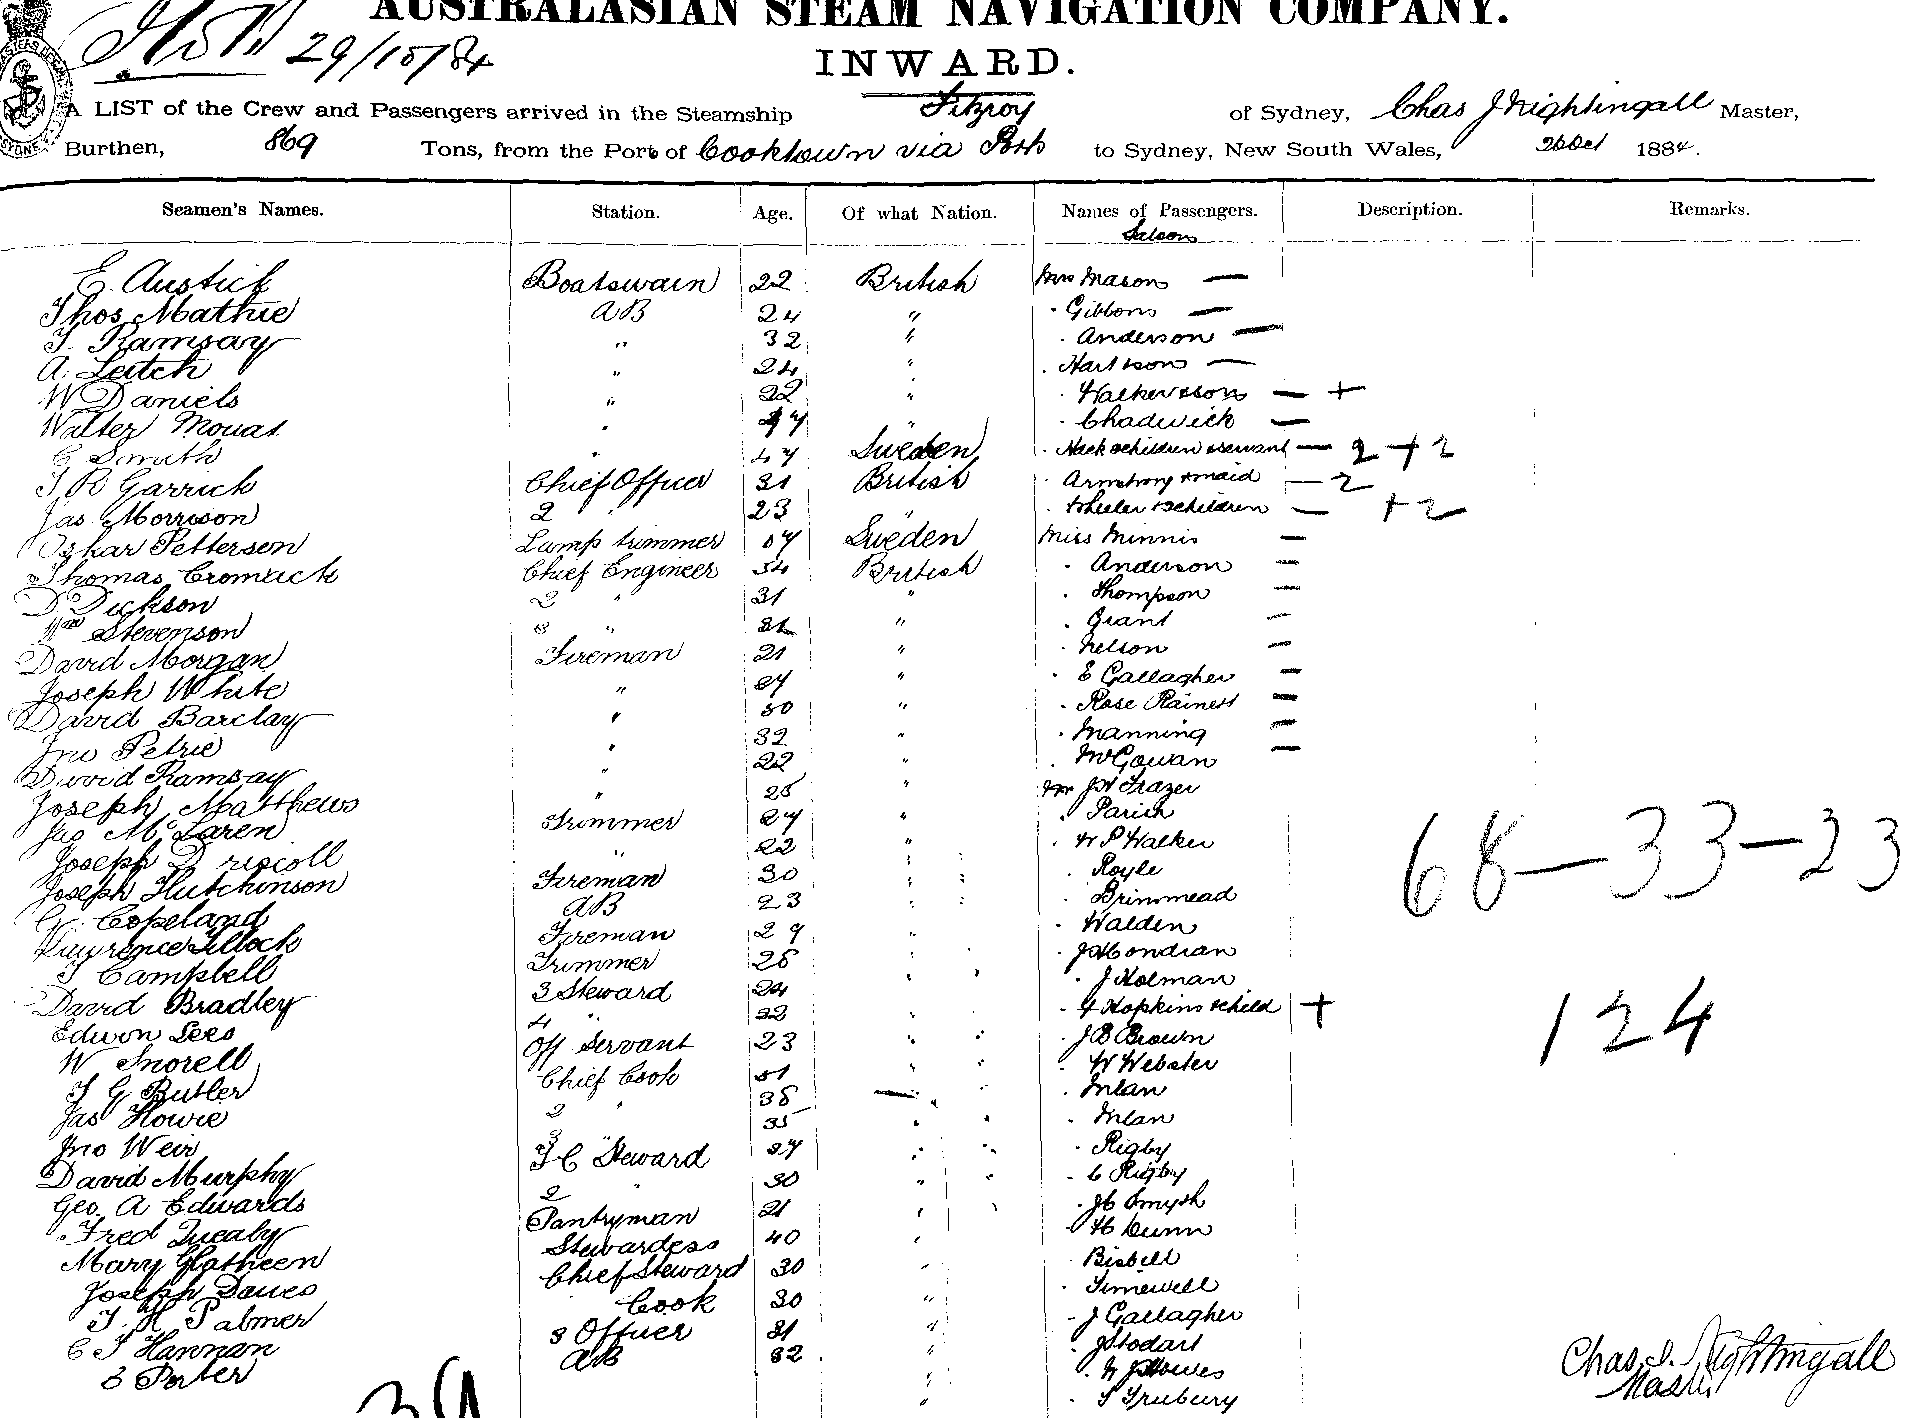 AUSTRALASIAN STEAM NAVIGATION COMPANY.
29/10/84
INWARD.
A LIST of the Crew and Passengers arrived in the Steamship Fitzroy of Sydney, Chas J Nightingall Master,
Burthen, 869 Tons, from the Port of Cooktown via Ports to Sydney, New South Wales, 26 Oct 1884.
Seamen's Names. Station. Age. Of what Nation. Names of Passengers. Description. Remarks.
Saloon
E. Austick Boatswain 22 British Mrs Mason —
Thos Mathie AB 24 " " Gibbons —
T. Ramsay " 32 " " Anderson —
A. Leitch " 24 " " Hart & son —
W Daniels " 22 " " Walker & son — +
Walter Mouat " " " Chadwick —
C Smith " 47 Sweden " Hack & children & servant — 2 + 2
J R Garrick Chief Officer 31 British " Armstrong & maid — 2
Jas Morrison 2 " 23 " " Wheeler & children — + 2
Oskar Petterson Lamp trimmer Sweden Miss Minnis —
Thomas Cormack Chief Engineer 34 British " Anderson —
D Dickson 2 " 31 " " Thompson —
Wm Stevenson 3 " " " Grant —
David Morgan Fireman 21 " " Nelson —
Joseph White " 27 " " E Gallagher —
David Barclay " 30 " " Rose —
Jno Petrie " 32 " " Manning —
David Ramsay " 22 " " McGowan —
Joseph Matthews " 25 " Mr J W Frazer
Jas McLaren Trimmer 27 " " Parish
Joseph Driscoll " 22 " " W P Walker
Joseph Hutchinson Fireman 30 " " Royle
G. Copeland AB 23 " " Brimmead
Lawrence Fireman 29 " " Walden
T Campbell Trimmer 28 " " Condran
David Bradley 3 Steward 24 " " J Holman
Edwin Lees 4 " 22 " " Hopkins & child +
W Snorell Off Servant 23 " " J B Brown
T G Butler Chief Cook 31 " " W Webster
Jas Howie 2 " 38 " " Mlan
Jno Weir 3 " 35 " " Mlan
David Murphy F C Steward 27 " " Rigby
Geo. A Edwards 2 " 30 " " C Rigby
Fred Quealy Pantryman 21 " " Smyth
Mary Glatheen Stewardess 40 " " H Dunn
Joseph Davies Chief Steward 30 " Bisbell
T. H Palmer Cook 30 " " Timewell
C T Hannan 3 Officer 31 " " J Gallagher
Porter AB 32 " " J Stodart
" " Howes
" " T Trubury
68 — 33 — 23
124
39
Chas. J. Nightingall
Master